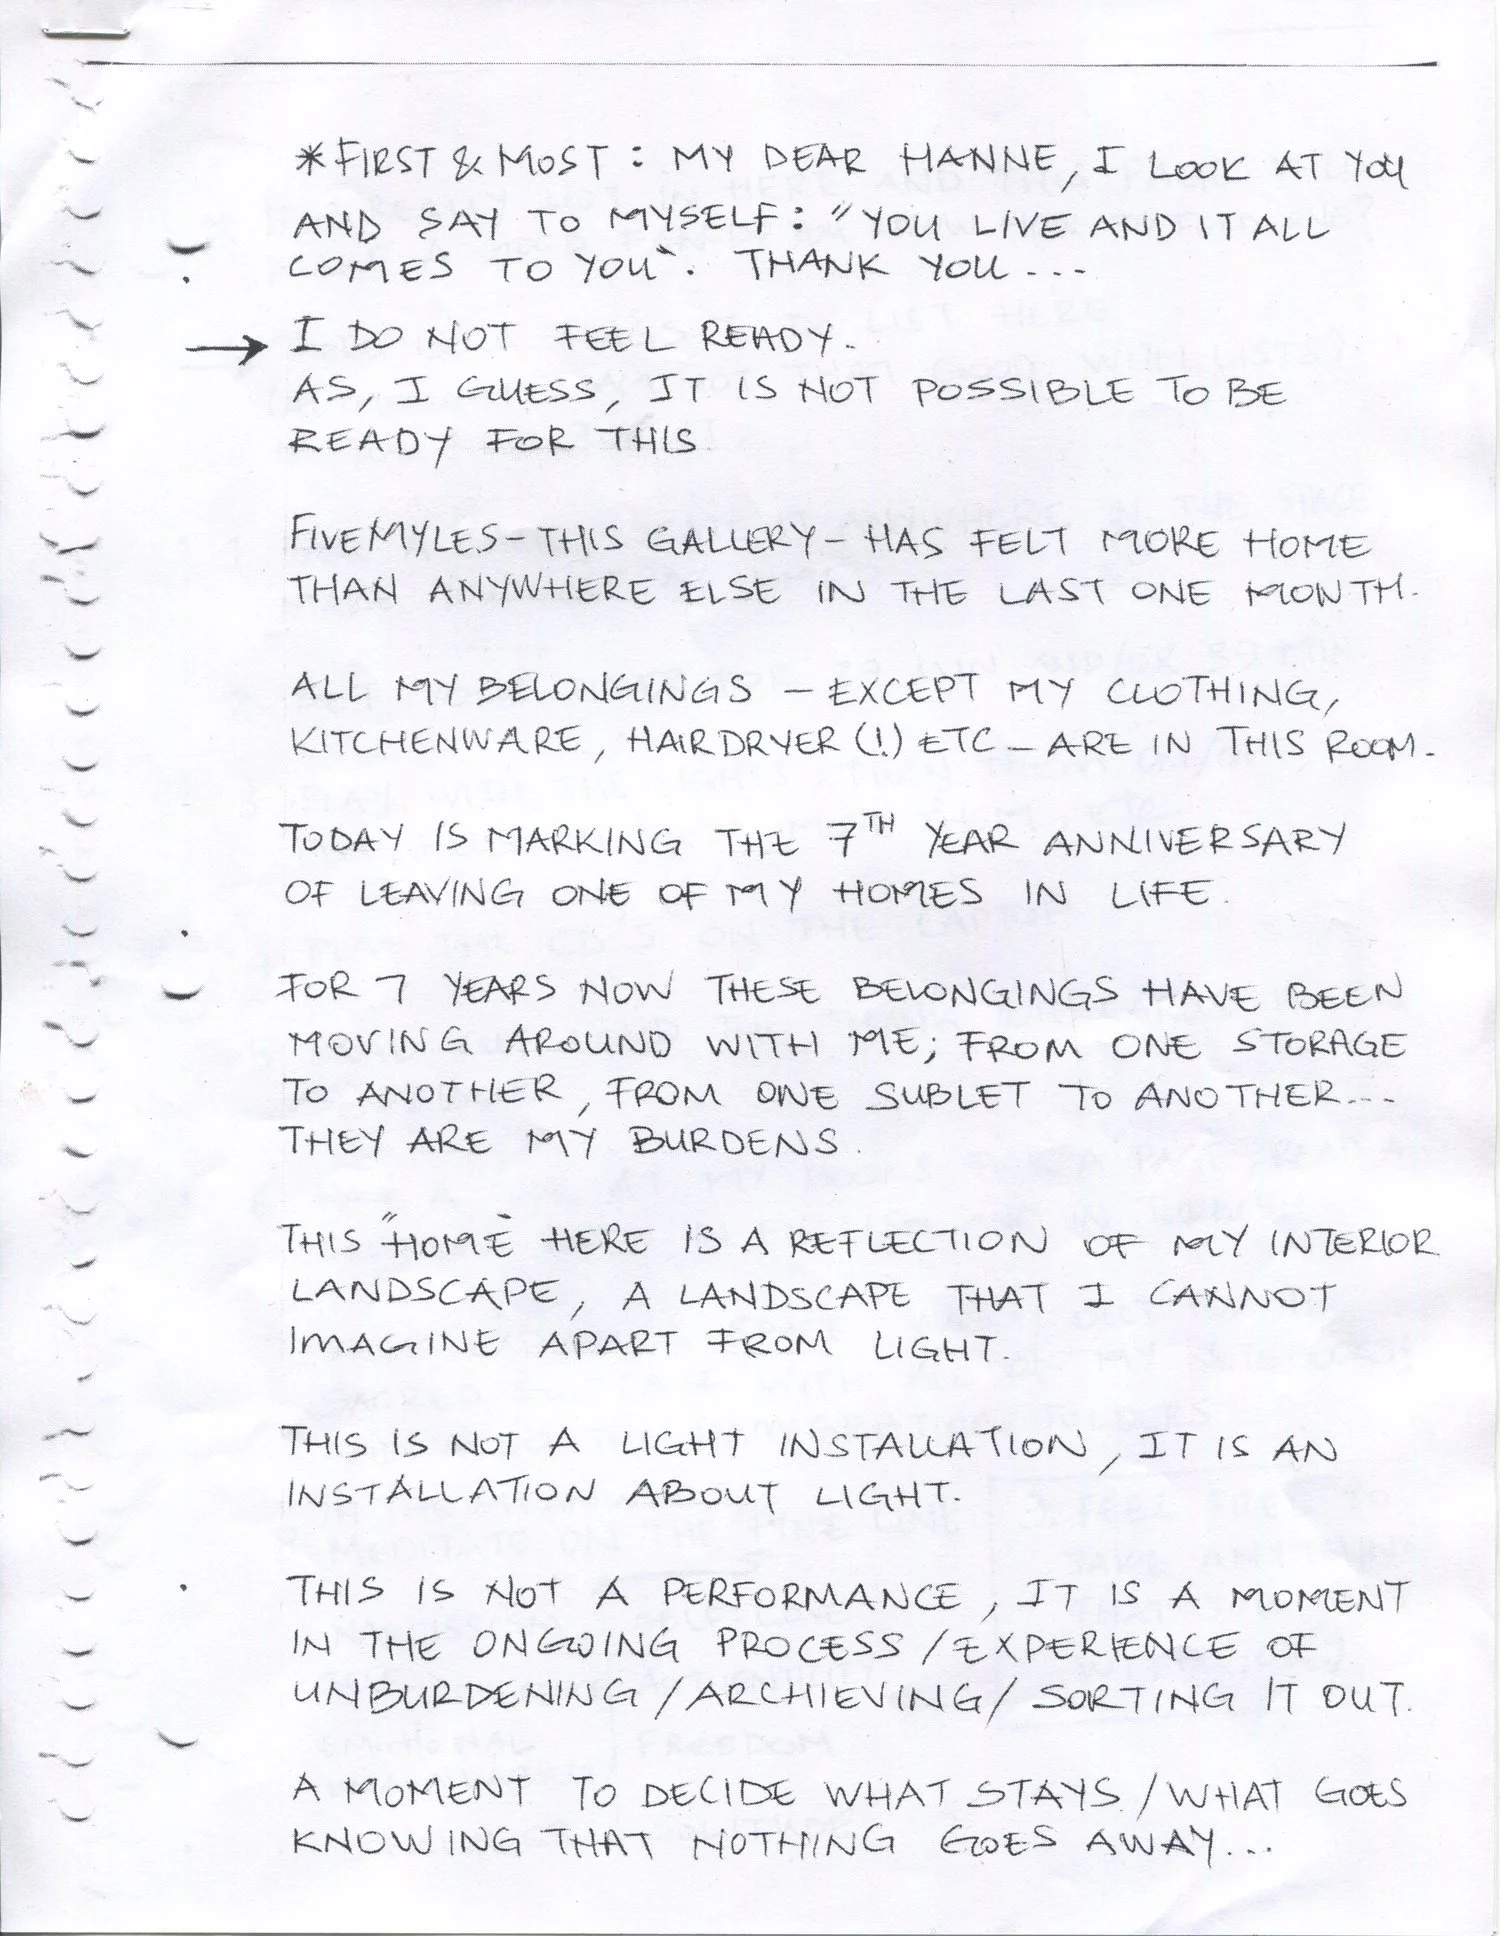 *FIRST & MOST: MY DEAR HANNE, I LOOK AT YOU
AND SAY TO MYSELF: "YOU LIVE AND IT ALL
COMES TO YOU". THANK YOU...
→ I DO NOT FEEL READY.
AS, I GUESS, IT IS NOT POSSIBLE TO BE
READY FOR THIS.
FIVEMYLES - THIS GALLERY - HAS FELT MORE HOME
THAN ANYWHERE ELSE IN THE LAST ONE MONTH.
ALL MY BELONGINGS - EXCEPT MY CLOTHING,
KITCHENWARE, HAIRDRYER (!) ETC - ARE IN THIS ROOM.
TODAY IS MARKING THE 7TH YEAR ANNIVERSARY
OF LEAVING ONE OF MY HOMES IN LIFE.
FOR 7 YEARS NOW THESE BELONGINGS HAVE BEEN
MOVING AROUND WITH ME; FROM ONE STORAGE
TO ANOTHER, FROM ONE SUBLET TO ANOTHER...
THEY ARE MY BURDENS.
THIS "HOME" HERE IS A REFLECTION OF MY INTERIOR
LANDSCAPE, A LANDSCAPE THAT I CANNOT
IMAGINE APART FROM LIGHT.
THIS IS NOT A LIGHT INSTALLATION, IT IS AN
INSTALLATION ABOUT LIGHT.
THIS IS NOT A PERFORMANCE, IT IS A MOMENT
IN THE ONGOING PROCESS/EXPERIENCE OF
UNBURDENING/ARCHIEVING/SORTING IT OUT.
A MOMENT TO DECIDE WHAT STAYS/WHAT GOES
KNOWING THAT NOTHING GOES AWAY...